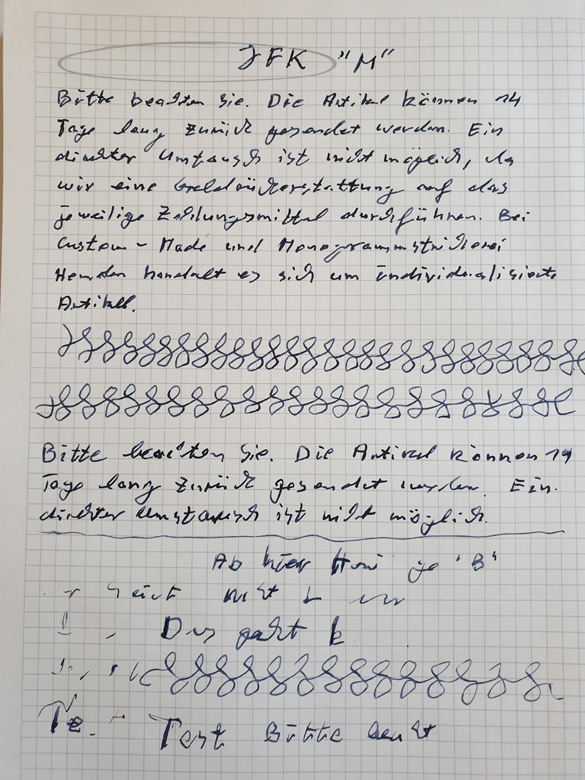 JFK "M"
Bitte beachten Sie. Die Artikel können 14
Tage lang zurück gesendet werden. Ein
direkter Umtausch ist nicht möglich, da
wir eine Geldrückerstattung auf das
jeweilige Zahlungsmittel durchführen. Bei
Custom-Made und Monogrammstickerei
Hemden handelt es sich um individualisierte
Artikel.
Bitte beachten Sie. Die Artikel können 14
Tage lang zurück gesendet werden. Ein
direkter Umstausch ist nicht möglich.
Ab hier "B"
nicht
Das geht
Te.
Test Bitte